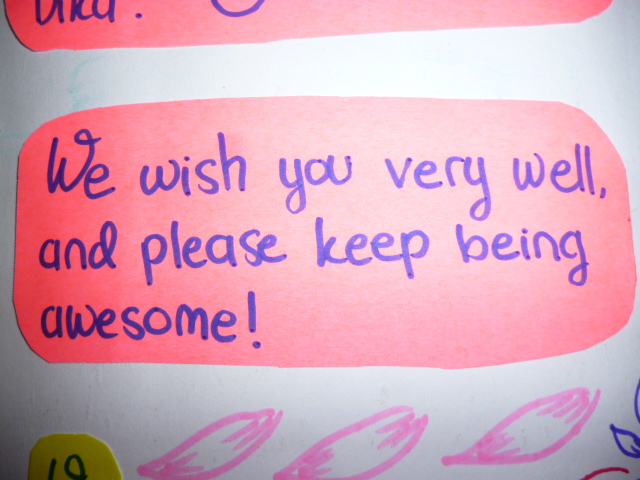 We wish you very well,
and please keep being
awesome!